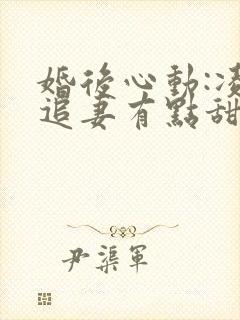 婚後心動:凌
追妻有點甜
尹渠軍